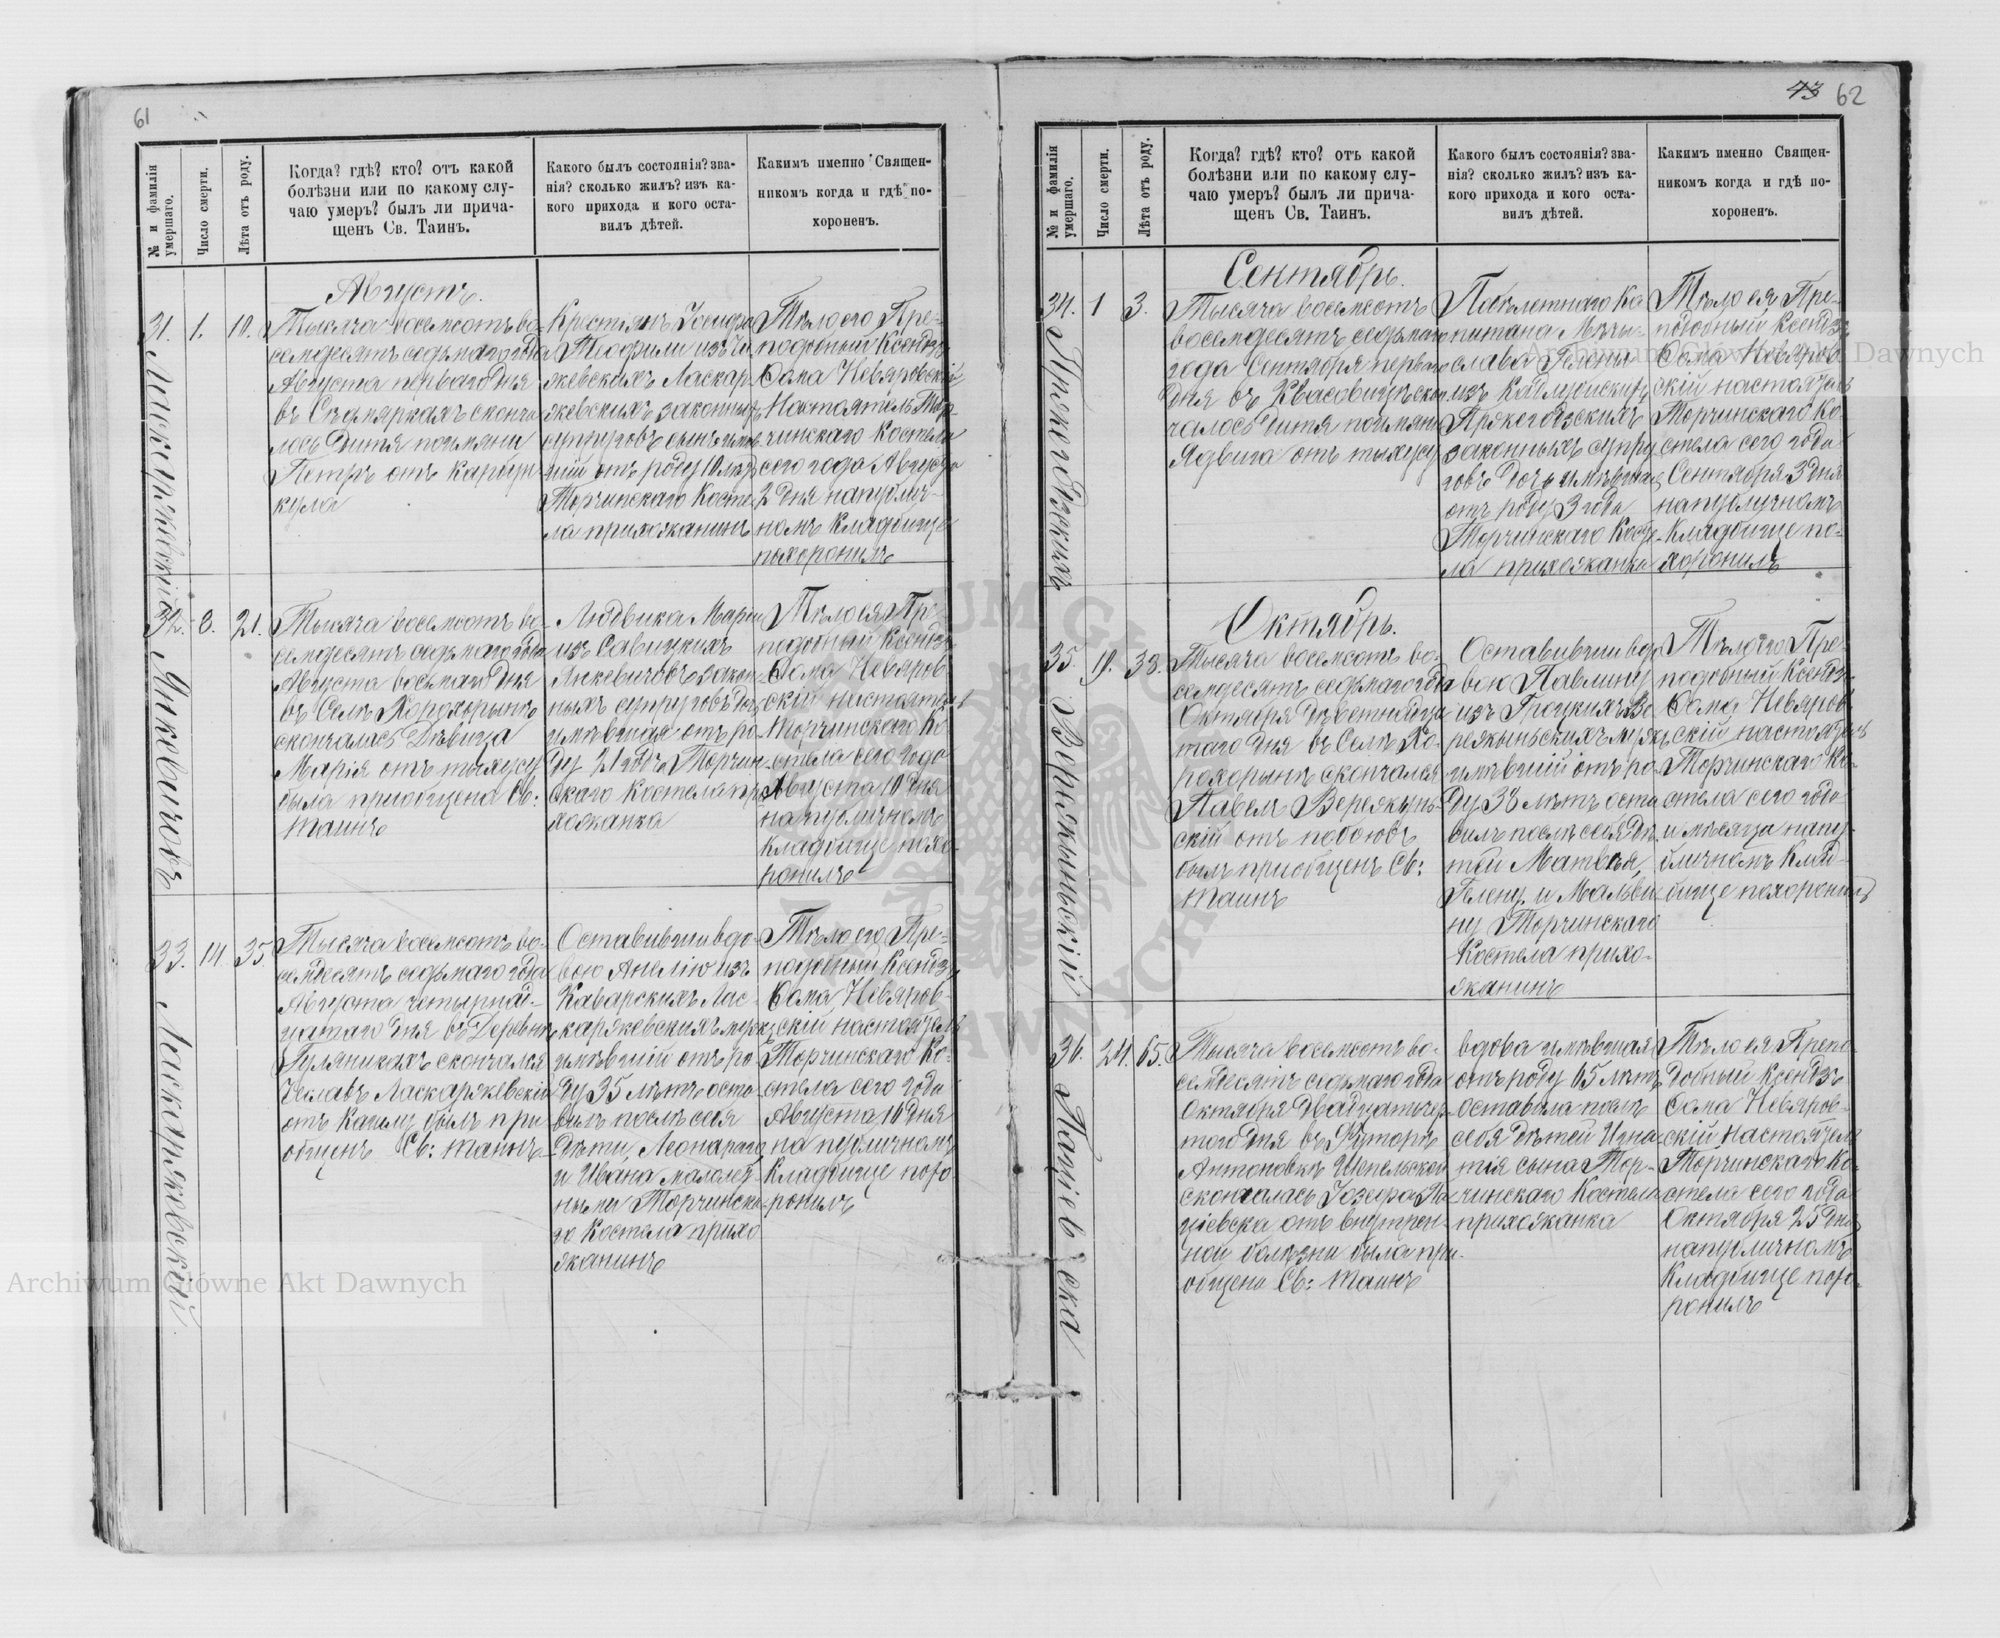 61
№ и фамилія умершаго.
Число смерти.
Лѣта отъ роду.
Когда? гдѣ? кто? отъ какой
болѣзни или по какому слу-
чаю умеръ? былъ ли прича-
щенъ Св. Таинъ.
Какого былъ состоянія? зва-
нія? сколько жилъ? изъ ка-
кого прихода и кого оста-
вилъ дѣтей.
Какимъ именно Священ-
никомъ когда и гдѣ по-
хороненъ.
Августъ.
31. 1. 10.
Ласкаржевскій
Тысяча восемсотъ во-
семдесятъ седьмаго года
Августа перваго дня
въ сконча
лось Дитя поимяни
Петръ отъ карбун
кула
Крестьянъ Іосифа
Теофили изъ
жевскихъ Ласкар
жевскихъ законныхъ
супруговъ сынъ имѣв
шій отъ роду 10 лѣтъ
Торчинскаго Косте
ла прихожанинъ
Тѣло его Пре-
подобный Ксендзъ
Сама Невяровскій
Настоятель Тор-
чинскаго Костела
сего года Августа
2 дня напублич-
номъ Кладбище
похоронилъ
32. 8. 21.
Янкевичовъ
Тысяча восемсотъ во-
семдесятъ седьмаго года
Августа восьмаго Дня
въ Селѣ Хорохоринѣ
скончалась Дѣвица
Марія отъ тыхусу
была приобщена Св:
таинъ
Людвика Маріи
изъ Савицкихъ
Янкевичовъ закон-
ныхъ супруговъ дочь
имѣвшая отъ ро
ду 21 годъ Торчин
скаго Костела при
хожанка
Тѣло ея Пре
подобный Ксендзъ
Сама Невяров
скій настоятель
Торчинскаго Ко
стела сего года
Августа 10 дня
напубличномъ
кладбище похо-
ронилъ
33. 14. 35
Ласкаржевский
Тысяча восемсотъ во-
семдесятъ седьмаго года
Августа четырнад-
цатаго дня въ Деревнѣ
Гуляникахъ скончался
Чеславъ Ласкаржевскій
отъ былъ при
общенъ Св: таинъ
Оставивши вдо-
вою Анелію изъ
Каварскихъ Лас-
каржевскихъ мужъ
имѣвшій отъ ро
ду 35 лѣтъ оста-
вилъ послѣ себя
дѣти, Леонарда
и Ивана малолѣт-
ными Торчинска
го Костела прихо
жанинъ
Тѣло его Пре-
подобный Ксендзъ
Сама Невяров-
скій настоятель
Торчинскаго Ко-
стела сего года
Августа 16 дня
на публичномъ
Кладбище похо-
ронилъ
43 62
№ и фамилія умершаго.
Число смерти.
Лѣта отъ роду.
Когда? гдѣ? кто? отъ какой
болѣзни или по какому слу-
чаю умеръ? былъ ли прича-
щенъ Св. Таинъ.
Какого былъ состоянія? зва-
нія? сколько жилъ? изъ ка-
кого прихода и кого оста-
вилъ дѣтей.
Какимъ именно Священ-
никомъ когда и гдѣ по-
хороненъ.
Сентябрь.
34. 1 3.
Тысяча восемсотъ
восемдесятъ седьмаго
года Сентября перваго
дня въ скон
чалось дитя поимяни
Ядвига отъ тыхусу
капитана Мечи-
слава Гелены
изъ
законныхъ супру
говъ Дочь имѣвшая
отъ роду 3 года
Торчинскаго Косте
ла прихожанка
Тѣло ея Пре-
подобный Ксендзъ
Сама Невяров
скій настоятель
Торчинскаго Ко
стела сего года
Сентября 3 дня
напубличномъ
Кладбище по-
хоронилъ
Октябрь.
35. 19. 38.
Вержжыньскій
Тысяча восемсотъ во-
семдесятъ седьмаго года
Октября
таго дня въ Селѣ Хо-
рохоринѣ скончался
Павелъ
скій отъ побоювъ
былъ приобщенъ Св:
таинъ
Оставивши вдо
вою Павлину
изъ Гроцкихъ Ве
мужъ
имѣвшій отъ ро-
ду 38 лѣтъ оста
вилъ послѣ себя дѣ
тей Матвѣя,
Гелену и Мальви
ну Торчинскаго
Костела прихо-
жанинъ
Тѣло его Пре-
подобный Ксендзъ
Сама Невяров
скій настоятель
Торчинскаго Ко-
стела сего года
и мѣсяца напу-
бличномъ Клад-
бище похоронилъ
36. 24. 65.
Пацiевска
Тысяча восемсотъ во-
семдесятъ седьмаго года
Октября двадцатьчер
таго дня въ Хуторѣ
Антоновкѣ Шепельской
скончалась Іозефа Па
ціевска отъ внутрен-
ной болѣзни была при-
общена Св: таинъ
вдова имѣвшая
отъ роду 65 лѣтъ
оставила послѣ
себя дѣтей Игна
тія сына Тор-
чинскаго Костела
прихожанка
Тѣло ея Препо-
добный Ксендзъ
Сама Невяров-
скій настоятель
Торчинскаго Ко-
стела сего года
Октября 25 дня
напубличномъ
Кладбище похо-
ронилъ
Archiwum Główne Akt Dawnych
Archiwum Główne Akt Dawnych